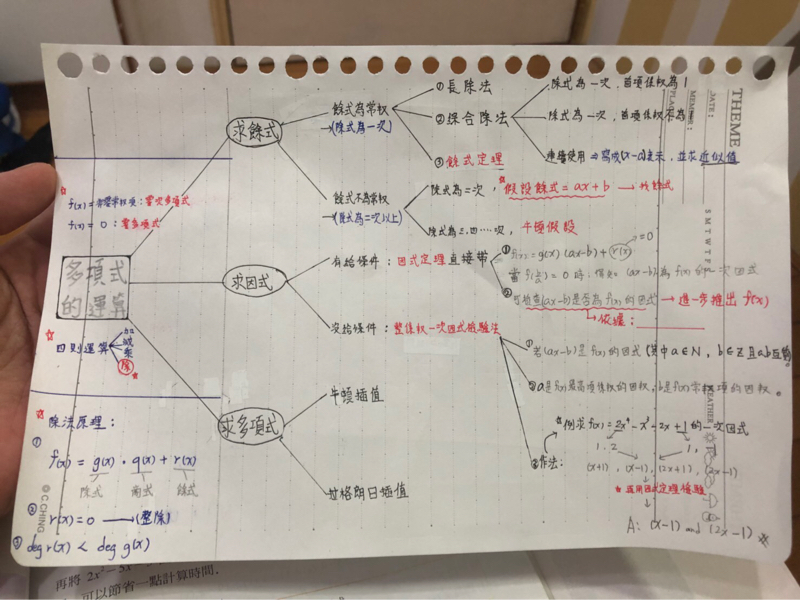 THEME
DATE:
MEMBER:
PLACE:
S M T W T F
WEATHER
© C.CHING
多項式
的運算
f(x)=非零常數項:零次多項式
f(x)=0:零多項式
四則運算
加
減
乘
除
除法原理:
①
f(x)=g(x)·q(x)+r(x)
除式 商式 餘式
② r(x)=0 →(整除)
③ deg r(x) < deg g(x)
求餘式
餘式為常數
→(除式為一次)
①長除法
②綜合除法
除式為一次,首項係數為1
除式為一次,首項係數不為1
連續使用⇒寫成(x-a)表示,並求近似值
③餘式定理
餘式不為常數
→(除式為二次以上)
除式為二次,假設餘式=ax+b → 找餘式
除式為三.四……次,牛頓假設
求因式
有給條件:因式定理直接帶
①f(x)=g(x)(ax-b)+r(x) =0
當f(b/a)=0時,得知(ax-b)為f(x)的一次因式
②可檢查(ax-b)是否為f(x)的因式→進一步推出f(x)
依據:
沒給條件:整係數一次因式檢驗法
①若(ax-b)是f(x)的因式(其中a∈N,b∈Z且ab互質)
②a是f(x)最高項係數的因數,b是f(x)常數項的因數。
③作法:
例求f(x)=2x⁴-x³-2x+1的一次因式
1.2 1,
(x+1),(x-1),(2x+1),(2x-1)
*再用因式定理檢驗
A:(x-1) and (2x-1)※
求多項式
牛頓插值
拉格朗日插值
再將 2x³-5x
可以節省一點計算時間.